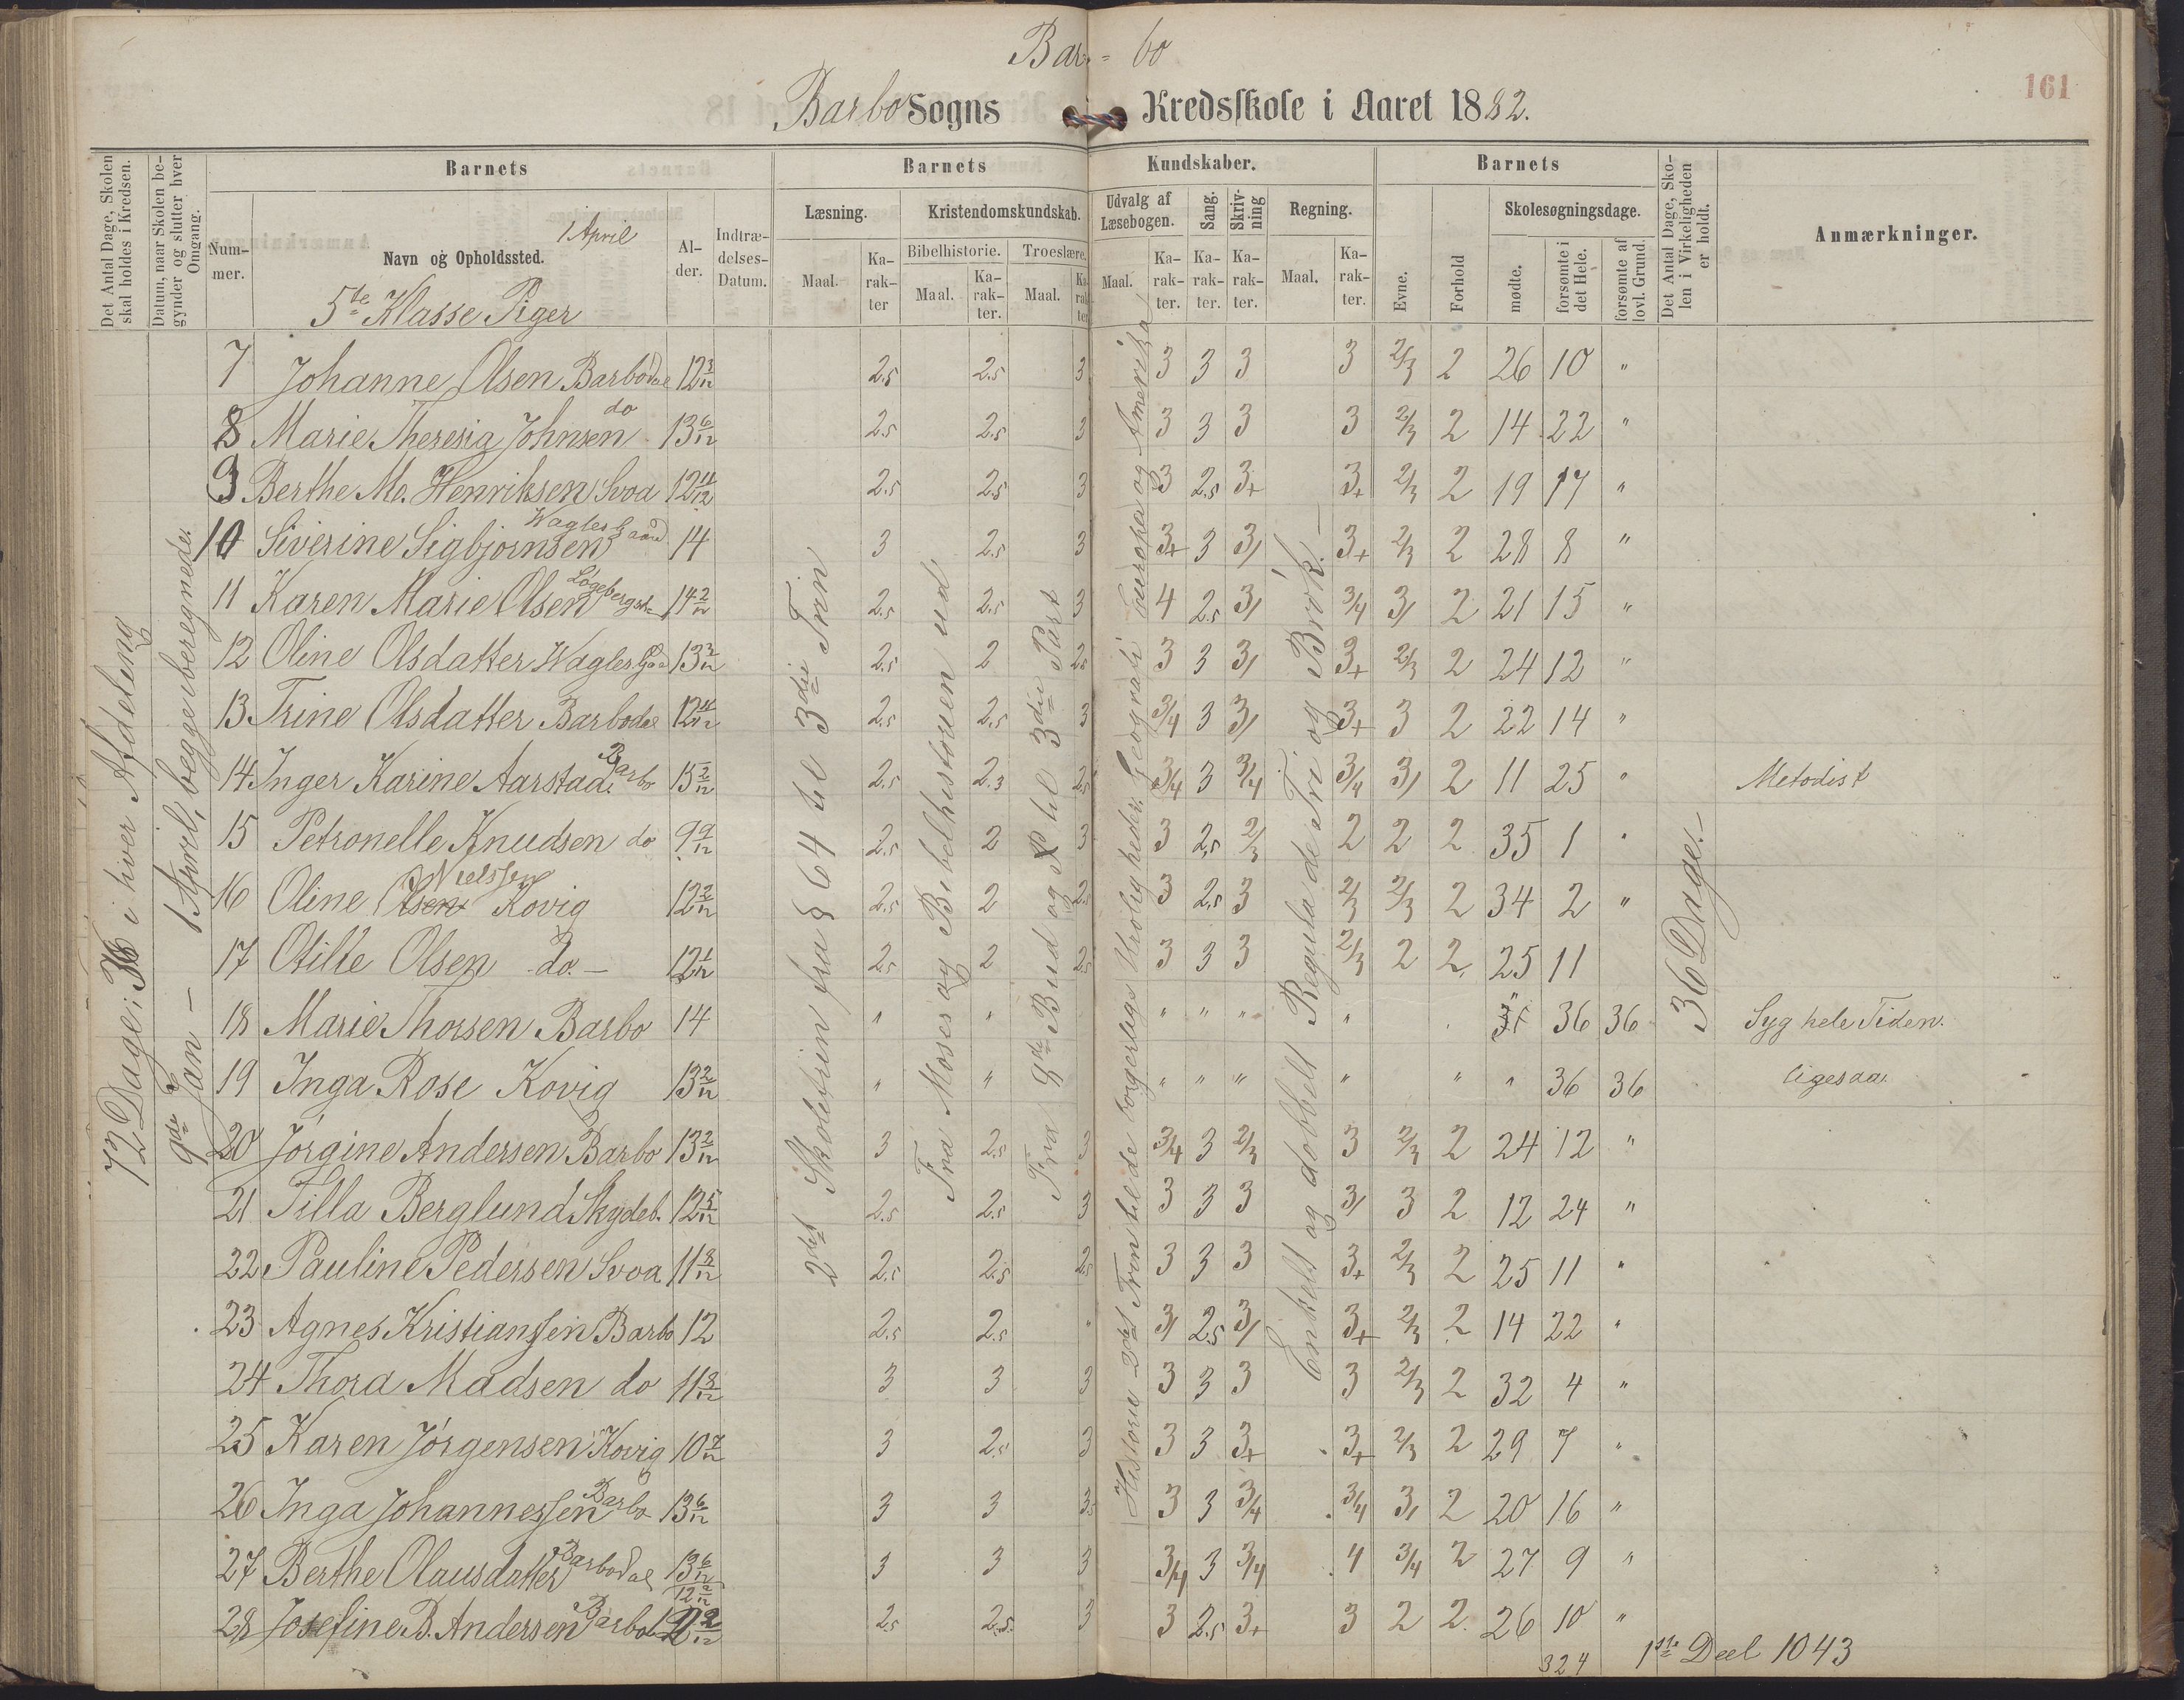 Bar= bo
161
Barbo Sogns Kredsskole i Aaret 1882.
Det Antal Dage, Skolen skal holdes i Kredsen.
Datum, naar Skolen begynder og slutter hver Omgang.
Barnets
Nummer.
Navn og Opholdssted.
1 April
5te Klasse Piger
Alder.
Indtrædelses-Datum.
Barnets Kundskaber.
Læsning.
Maal.
Karakter
Kristendomskundskab.
Bibelhistorie.
Maal.
Karakter.
Troeslære.
Maal.
Karakter
Udvalg af Læsebogen.
Maal.
Karakter.
Sang.
Karakter.
Skrivning
Karakter.
Regning.
Maal.
Karakter.
Barnets
Evne.
Forhold
Skolesøgningsdage.
mødte.
forsømte i det Hele.
forsømte af lovl. Grund.
Det Antal Dage, Skolen i Virkeligheden er holdt.
Anmærkninger.
72 Dage; 36 i hver Afdeling
9de Jan – 1 April, begge iberegnede.
2det Skoletrin fra § 64 til 3die Trin
Fra Moses og Bibelhistorien ud
Fra 8de Bud og til 3die Part
Historie 2det Trin til de borgerligs Uroligheder. Geografi Europa og Amerika
Enkelt og dobbelt Regula de Tri og Brøk.
36 Dage.
7 Johanne Olsen Barbodal 12 3/12 2.5 2.5 3 3 3 3 3 2/3 2 26 10 "
8 Marie Theresia Johnsen do 13 6/12 2.5 2.5 3 3 3 3 3 2/3 2 14 22 "
9 Berthe M. Henriksen Svoa 12 11/12 2.5 2.5 3 3 2.5 3+ 3+ 2/3 2 19 17 "
10 Siverine Sigbjørnsen Waglesgaard 14 3 2.5 3 3+ 3 3/ 3+ 2/3 2 28 8 "
11 Karen Marie Olsen 14 2/12 2.5 2.5 3 4 2.5 3/ 3/4 3/ 2 21 15 "
12 Oline Olsdatter Wagles Gaa 13 3/12 2.5 2 2.5 3 3 3/ 3+ 2/3 2 24 12 "
13 Trine Olsdatter Barbodal 12 11/12 2.5 2.5 3 3/4 3 3/ 3+ 3 2 22 14 "
14 Inger Karine Aarstad. Barbo 15 2/12 2.5 2.3 2.5 3/4 3 3/4 3/4 3/ 2 11 25 " Metodist
15 Petronelle Knudsen do 9 9/12 2.5 2 3 3 2.5 2/3 2 2 2 35 1 "
16 Oline Olsen Nielssen Kovig 12 2/12 2.5 2 2.5 3 2.5 3 2/3 2/3 2 34 2 "
17 Otilie Olsen do. – 12 1/12 2.5 2 2.5 3 3 3 2/3 2 2. 25 11
18 Marie Thorsen Barbo 14 " " " " " " " 36 36 Syg hele Tiden.
19 Inga Rose Kovig 13 2/12 " " " " " " " " 36 36 ligesaa.
20 Jørgine Andersen Barbo 13 2/12 3 2.5 3 3/4 3 2/3 3 2/3 2 24 12 "
21 Tilla Berglund Skydeb. 12 5/12 2.5 2.5 3 3 3 3 3/ 3 2 12 24 "
22 Pauline Pedersen Svoa 11 8/12 2.5 2.5 2.5 3 3 3 3+ 2/3 2 25 11 "
23 Agnes Kristianssen Barbo 12 2.5 2.5 " 3/ 2.5 3/ 3+ 2/3 2 14 22 "
24 Thora Madsen do 11 8/12 3 3 3 3 3 3 3 2/3 2 32 4 "
25 Karen Jørgensen Kovig 10 7/12 3 2.5 3 3 3 3+ 3+ 2/3 2 29 7 "
26 Inga Johannessen Barbo 13 6/12 3 3 3.5 3 3 3/4 3/4 3/ 2 20 16 "
27 Berthe Olausdatter Barbodal 13 6/12 3 3 3 3/4 3 3/4 4 3/4 2 27 9 "
28 Josefine B. Andersen Barbo 12 2/12 2.5 2.5. 3 3 2.5 3+ 3 2 2. 26 10 "
324
1ste Deel 1043